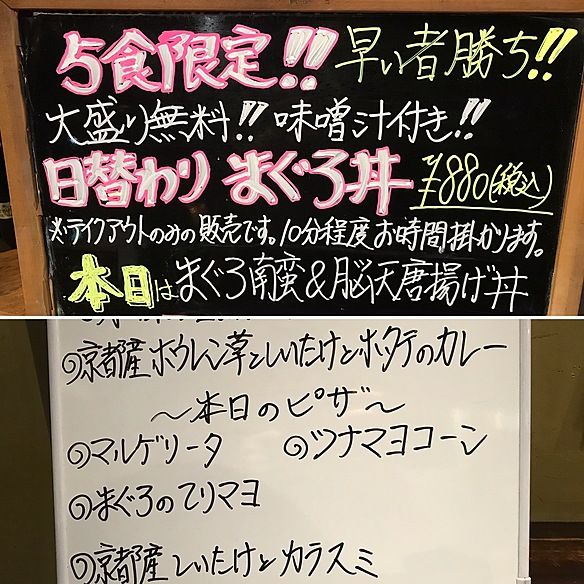 5食限定!! 早い者勝ち!!
大盛り無料!! 味噌汁付き!!
日替わり まぐろ丼 ¥880(税込)
※テイクアウトのみの販売です。10分程度お時間掛かります。
本日はまぐろ南蛮&脳天唐揚げ丼
◎京都産ホウレン草としいたけとホタテのカレー
〜本日のピザ〜
◎マルゲリータ ◎ツナマヨコーン
◎まぐろのてりマヨ
◎京都産しいたけとカラスミ